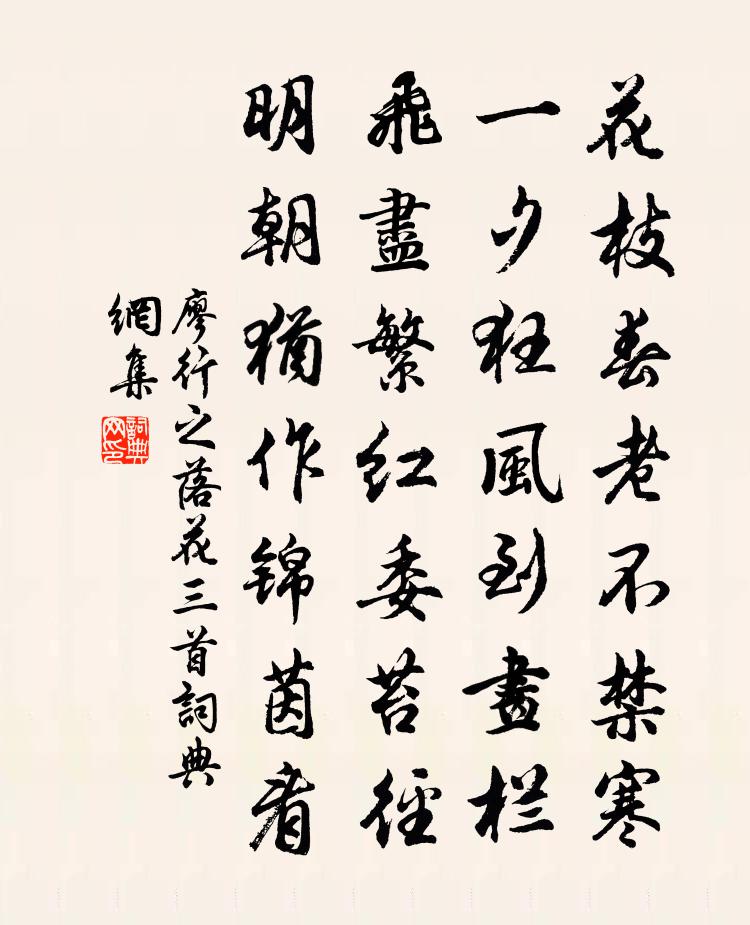 花枝春老不禁寒
一夕狂風到畫栏
飛盡繁红委苔徑
明朝猶作锦茵看
廖行之落花三首詞典
網集
詞典
网印